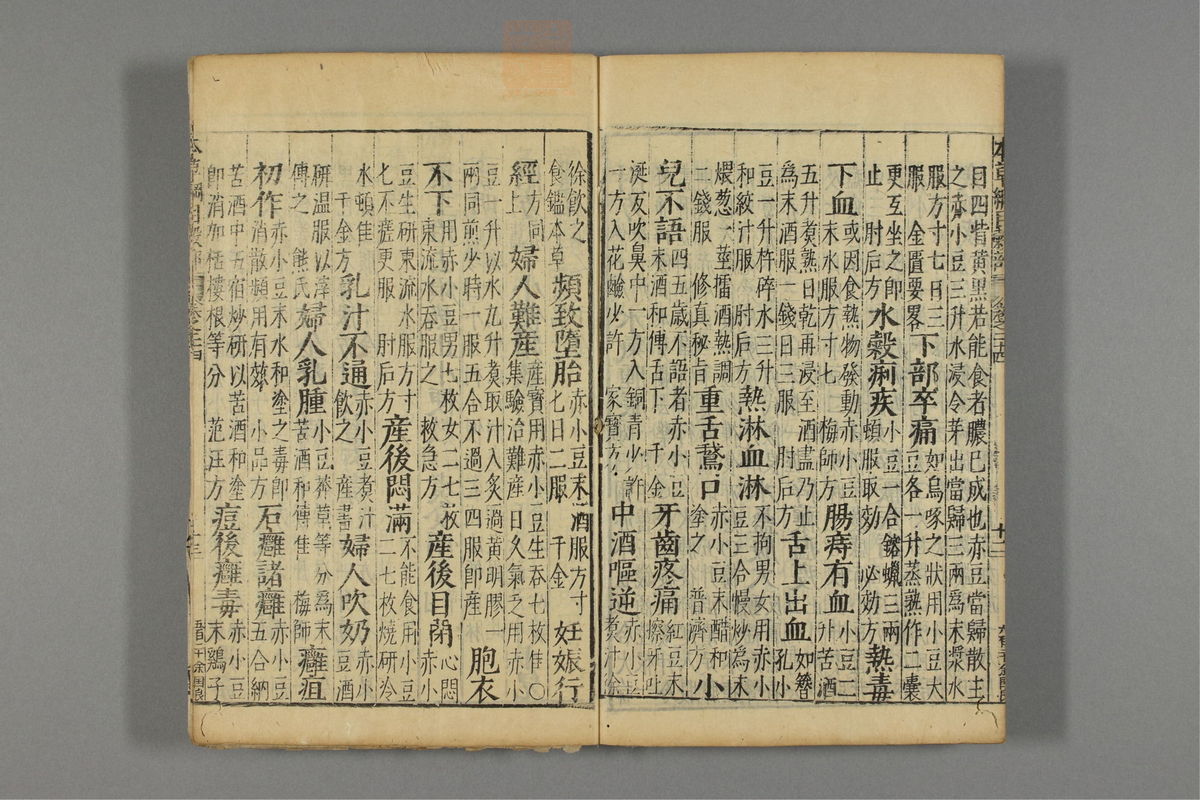 目四眥黃黑若能食者膿已成也赤豆當歸散主之赤小豆三升水浸令芽出當歸三兩為末漿水
服方寸七日三服 金匱要畧 下部卒痛 如鳥啄之狀用小豆大豆各一升蒸熱作二囊
更互坐之即止 肘后方 水穀痢疾 小豆一合鎔蠟三兩頓服取効 必効方 熱毒
下血 或因食熱物發動赤小豆末水服方寸七 梅師方 腸痔有血 小豆二升苦酒
五升煮熟日乾再浸至酒盡乃止為末酒服一錢日三服 肘后方 舌上出血 如簪孔小
豆一升杵碎水三升和絞汁服 肘后方 熱淋血淋 不拘男女用赤小豆三合慢炒為末
煨葱一莖擂酒熱調二錢服 修真秘旨 重舌鵞口 赤小豆末醋和塗之 普濟方 小
兒不語 四五歲不語者赤小豆末酒和傅舌下 千金 牙齒疼痛 紅豆末擦牙吐
涎及吹鼻中一方入銅青少許一方入花鹼少許 家寶方 中酒嘔逆 赤小豆煮汁徐
徐飲之 食鑑本草 頻致墮胎 赤小豆末酒服方寸七日二服 千金 妊娠行
經 方同上 婦人難產 產寶用赤小豆生吞七枚佳○集驗治難產日久氣乏用赤小
豆一升以水九升煮取汁入炙過黃明膠一兩同煎少時一服五合不過三四服即產 胞衣
不下 用赤小豆男七枚女二七枚東流水吞服之 救急方 產後目閉 心悶赤小
豆生研東流水服方寸七不瘥更服 肘后方 產後悶滿 不能食用小豆二七枚燒研冷
水頓佳 千金方 乳汁不通 赤小豆煮汁飲之 產書 婦人吹奶 赤小豆酒
研溫服以滓傅之 熊氏 婦人乳腫 小豆莽草等分為末苦酒和傅佳 梅師 癰疽
初作 赤小豆末水和塗之毒即消散頻用有效 小品方 石癰諸癰 赤小豆五合納
苦酒中五宿炒研以苦酒和塗即消加栝樓根等分 范汪方 痘後癰毒 赤小豆末鷄子